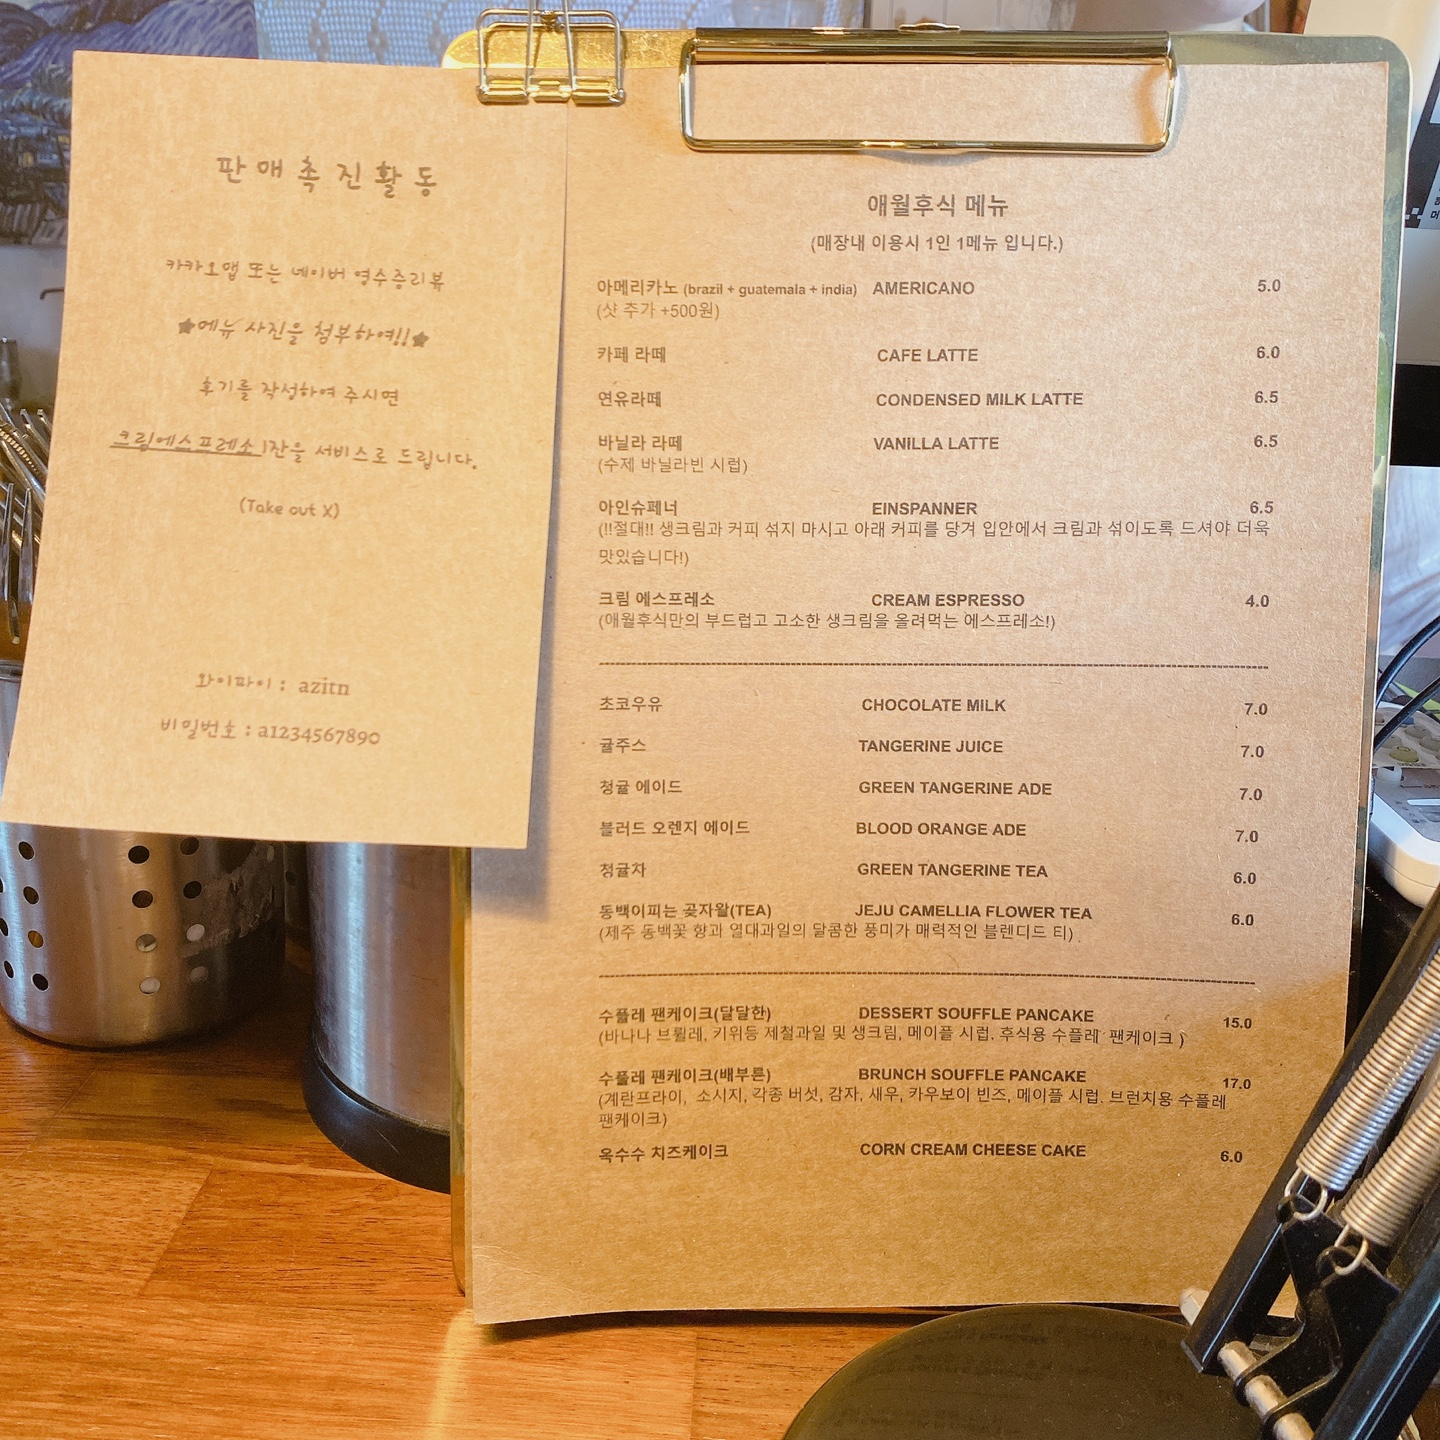 판매촉진활동
카카오맵 또는 네이버 영수증리뷰
★메뉴 사진을 첨부하여!!★
후기를 작성하여 주시면
크림에스프레소 1잔을 서비스로 드립니다.
(Take out X)
와이파이 : azitn
비밀번호 : a1234567890
애월후식 메뉴
(매장내 이용시 1인 1메뉴 입니다.)
아메리카노 (brazil + guatemala + india) AMERICANO 5.0
(샷 추가 +500원)
카페 라떼 CAFE LATTE 6.0
연유라떼 CONDENSED MILK LATTE 6.5
바닐라 라떼 VANILLA LATTE 6.5
(수제 바닐라빈 시럽)
아인슈페너 EINSPANNER 6.5
(!!절대!! 생크림과 커피 섞지 마시고 아래 커피를 당겨 입안에서 크림과 섞이도록 드셔야 더욱
맛있습니다!)
크림 에스프레소 CREAM ESPRESSO 4.0
(애월후식만의 부드럽고 고소한 생크림을 올려먹는 에스프레소!)
초코우유 CHOCOLATE MILK 7.0
귤주스 TANGERINE JUICE 7.0
청귤 에이드 GREEN TANGERINE ADE 7.0
블러드 오렌지 에이드 BLOOD ORANGE ADE 7.0
청귤차 GREEN TANGERINE TEA 6.0
동백이피는 곶자왈(TEA) JEJU CAMELLIA FLOWER TEA 6.0
(제주 동백꽃 향과 열대과일의 달콤한 풍미가 매력적인 블렌디드 티)
수플레 팬케이크(달달한) DESSERT SOUFFLE PANCAKE 15.0
(바나나 브륄레, 키위등 제철과일 및 생크림, 메이플 시럽. 후식용 수플레 팬케이크 )
수플레 팬케이크(배부른) BRUNCH SOUFFLE PANCAKE 17.0
(계란프라이, 소시지, 각종 버섯, 감자, 새우, 카우보이 빈즈, 메이플 시럽. 브런치용 수플레
팬케이크)
옥수수 치즈케이크 CORN CREAM CHEESE CAKE 6.0